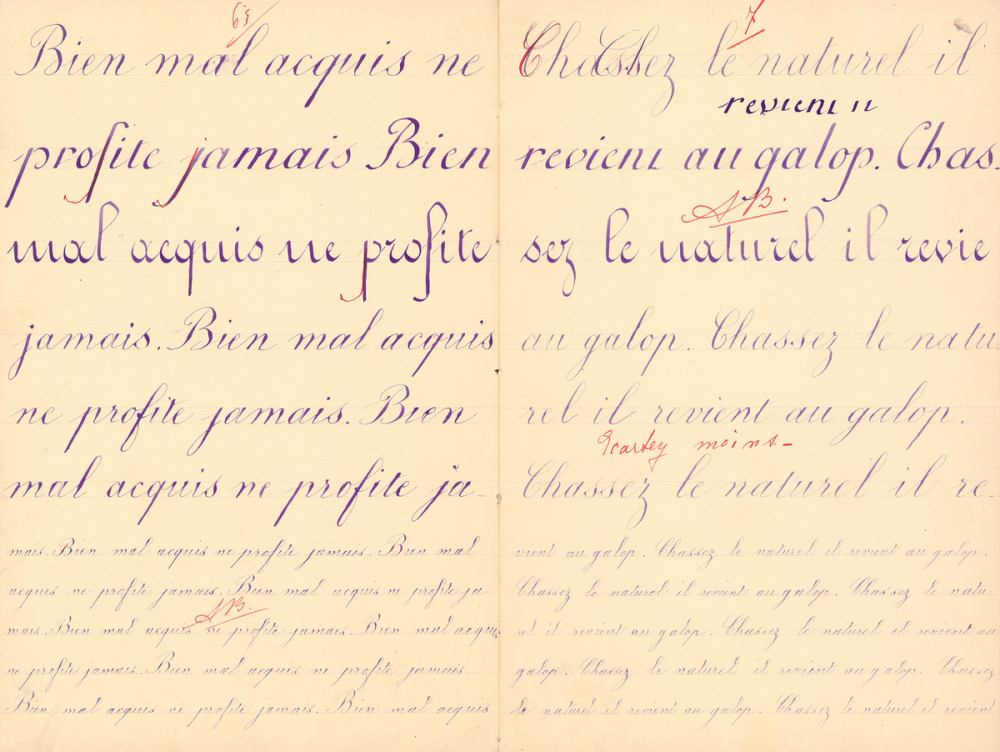 6½
Bien mal acquis ne
profite jamais Bien
mal acquis ne profite
jamais. Bien mal acquis
ne profite jamais. Bien
mal acquis ne profite ja-
mais. Bien mal acquis ne profite jamais. Bien mal
acquis ne profite jamais. Bien mal acquis ne profite ja-
AB.
mais. Bien mal acquis ne profite jamais. Bien mal acquis
ne profite jamais. Bien mal acquis ne profite jamais.
Bien mal acquis ne profite jamais. Bien mal acquis
7
Chassez le naturel il
revient il
revient au galop. Chas.
AB.
sez le naturel il revie
au galop. Chassez le natu.
rel il revient au galop.
Ecartez moins-
Chassez le naturel il re-
vient au galop. Chassez le naturel il revient au galop.
Chassez le naturel il revient au galop. Chassez le natu-
rel il revient au galop. Chassez le naturel il revient au
galop. Chassez le naturel il revient au galop. Chassez
le naturel il revient au galop. Chassez le naturel il revient